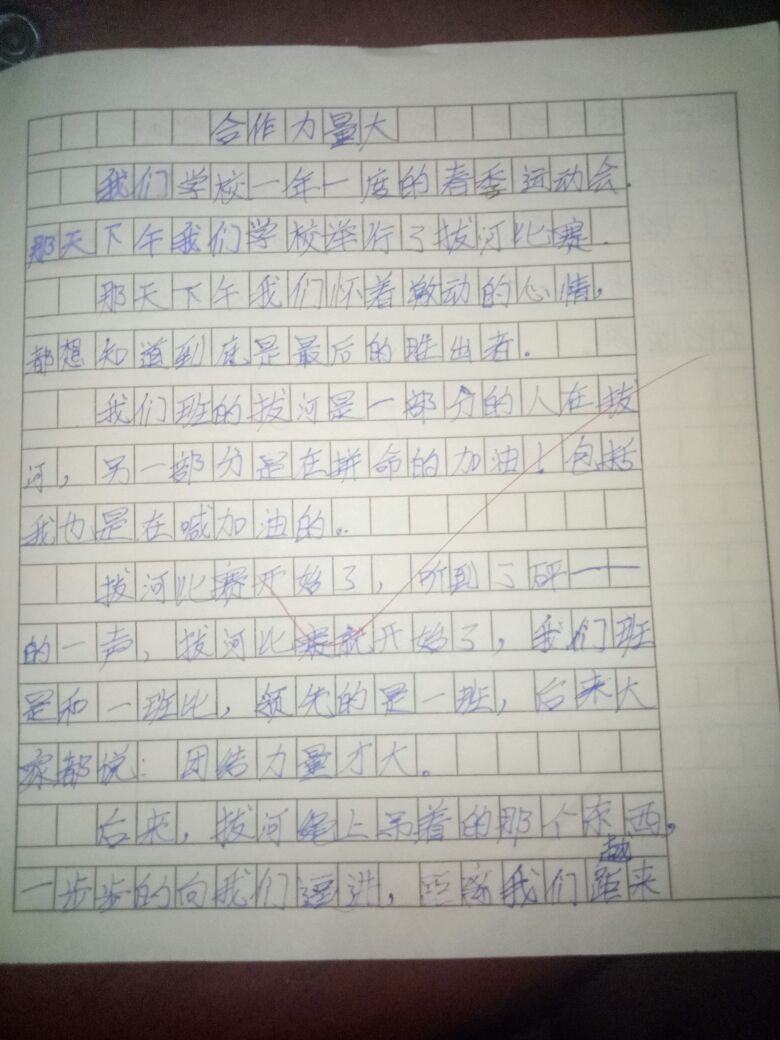 合作力量大
我们学校一年一度的春季运动会.
那天下午我们学校举行了拔河比赛.
那天下午我们怀着敫动的心情,
都想知道到底是最后的胜出者.
我们班的拔河是一部分的人在拔
河,另一部分是在拼命的加油!包括
我也是在喊加油的..
拔河比赛开始了,听到了砰——
的一声,拔河比赛就开始了,我们班
是和一班比,领先的是一班,后来大
家都说:团结力量才大。
后来,拔河绳上吊着的那个东西,
一步步的向我们逼进,我们距越来